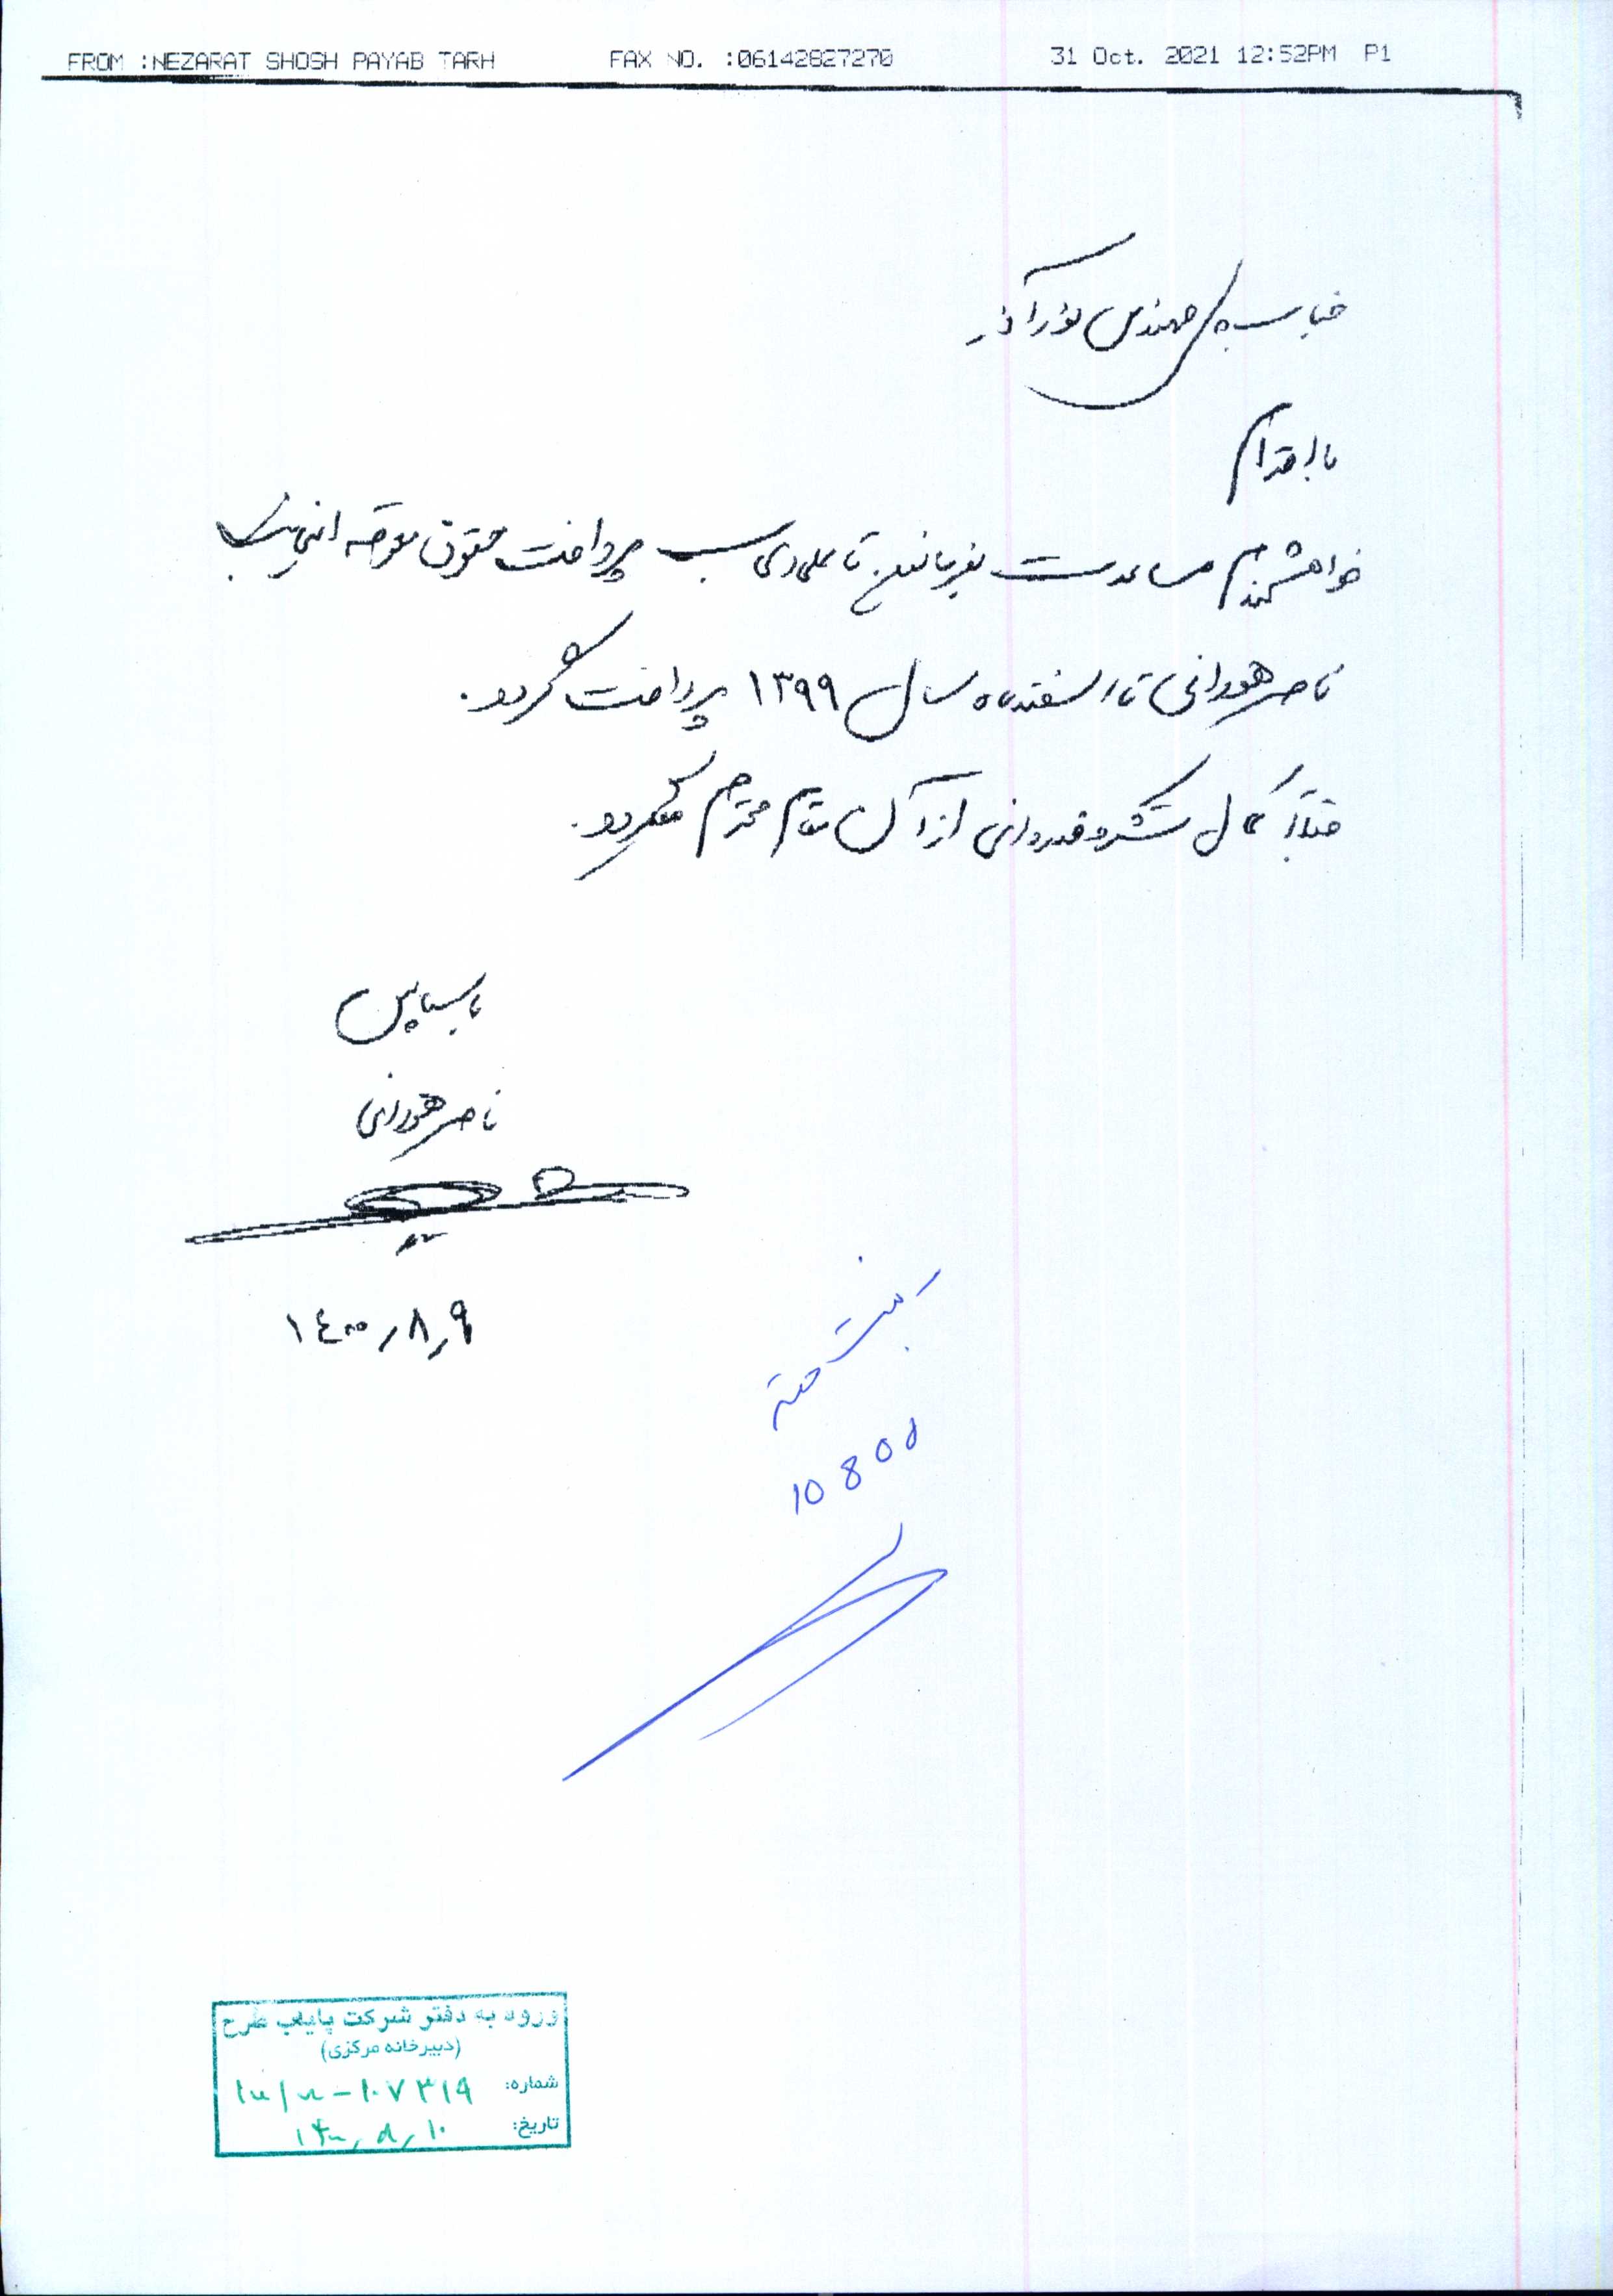 FROM :NEZARAT SHOSH PAYAB TARH FAX NO. :06142827270 31 Oct. 2021 12:52PM P1
جناب مهندس نورآذر
با احترام
خواهشمندم مساعدت بفرمائید تا علی پرداخت حقوق معوقه اینجانب
ناصر هورانی تا اسفندماه سال ۱۳۹۹ پرداخت گردد.
قبلاً کمال تشکر و قدردانی از آن مقام محترم میگردد.
با سپاس
ناصر هورانی
۱۴۰۰,۸,۹
ورود به دفتر شرکت پایاب طرح
(دبیرخانه مرکزی)
شماره: ۱۰۷۳۱۹
تاریخ: ۱۴۰۰,۸,۱۰